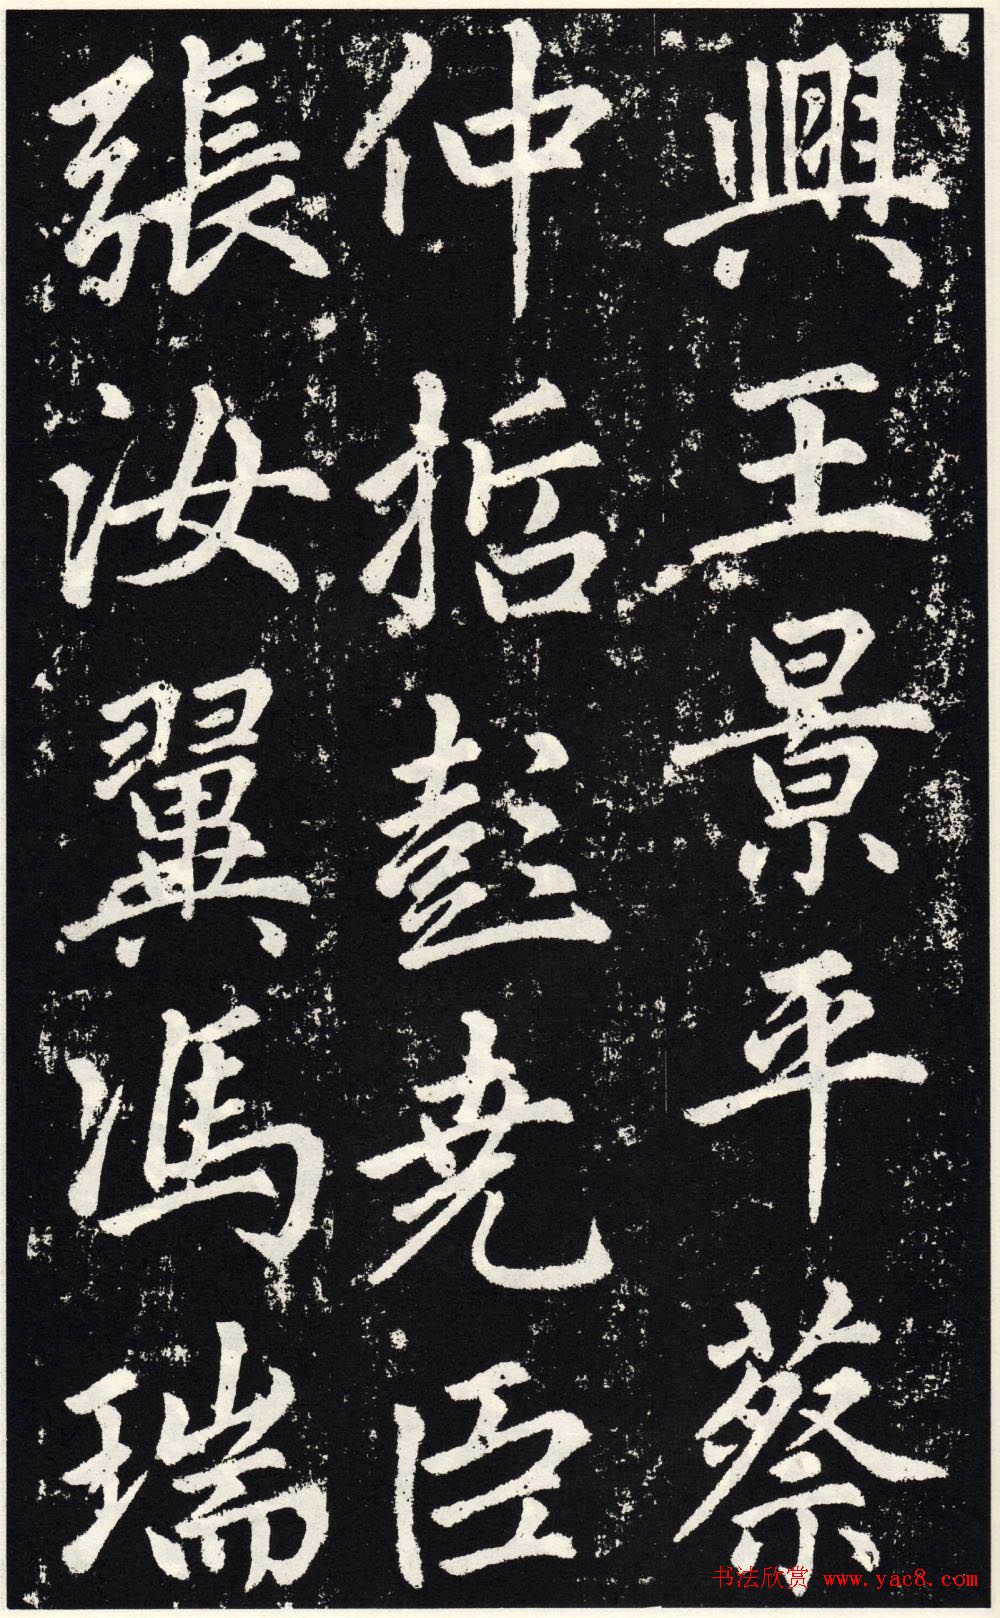 興王景平蔡
仲哲彭堯臣
張汝翼馮瑞
书法欣赏 www.yac8.com